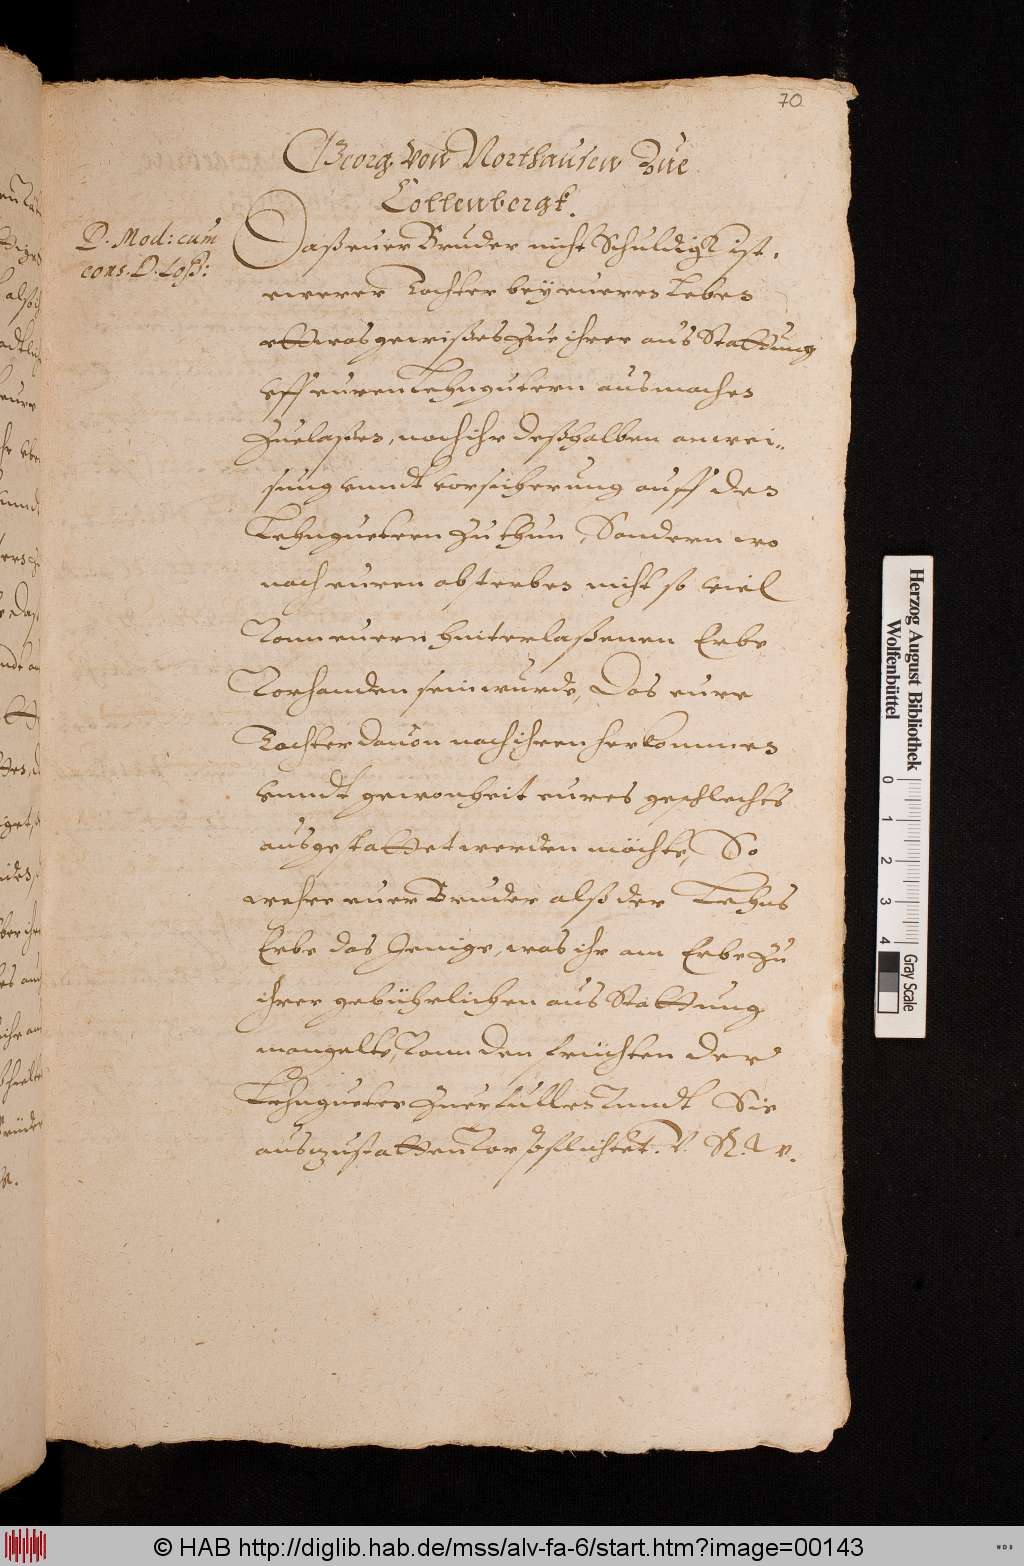 70
Georg von Northausen Zue
Cottenbergk.
D. Mod: cum
cons. D. Loß:
Daß euer Bruder nicht Schuldigk ist,
ewerer Tochter bey eueres leben
ettwas gewißes Zue ihrer aus Stattung
vff euren Lehngutern ausmachen
Zuelaßen, noch ihr deßhalben anwei-
sung vnndt vorsicherung auff den
Lehnguetern Zu thun, Sondern wo
nach euren absterben nicht so viel
Vonn euern hinterlaßenen Erbe
Vorhanden sein wurde, Das eure
Tochter dauon nach ihren herkommen
vnndt gewonheit eures geschlechts
ausgestattet werden möchte, So
wehre euer Bruder alß der Lehns
Erbe das Jenige, was ihr am Erbe Zu
ihrer gebührlichen aus Stattung
mangelte, Vonn den früchten der
Lehngueter Zuerfullen Vnndt Sie
auszustatten Vorpflichtet. V. R. W.
Herzog August Bibliothek
Wolfenbüttel
0 1 2 3 4
Gray Scale
© HAB http://diglib.hab.de/mss/alv-fa-6/start.htm?image=00143